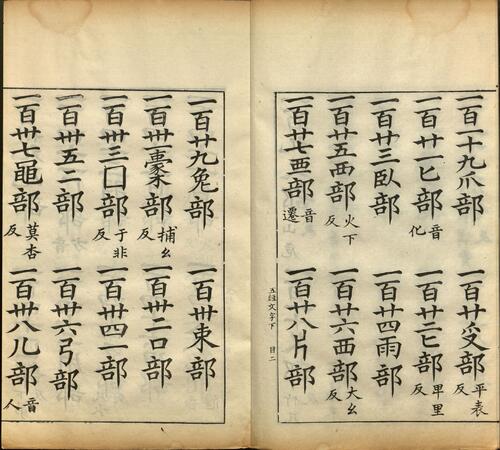 一百十九爪部 一百廿𠬪部平表反
一百廿一匕部音化 一百廿二匕部卑里反
一百廿三臥部 一百廿四雨部
一百廿五襾部火下反 一百廿六西部大幺反
一百廿七覀部音遷 一百廿八片部
五經文字下 目二
一百廿九兔部 一百卅東部
一百卅一㯻部捕幺反 一百卅二口部
一百卅三囗部于非反 一百卅四一部
一百卅五二部 一百卅六弓部
一百卅七黽部莫杏反 一百卅八儿部音人